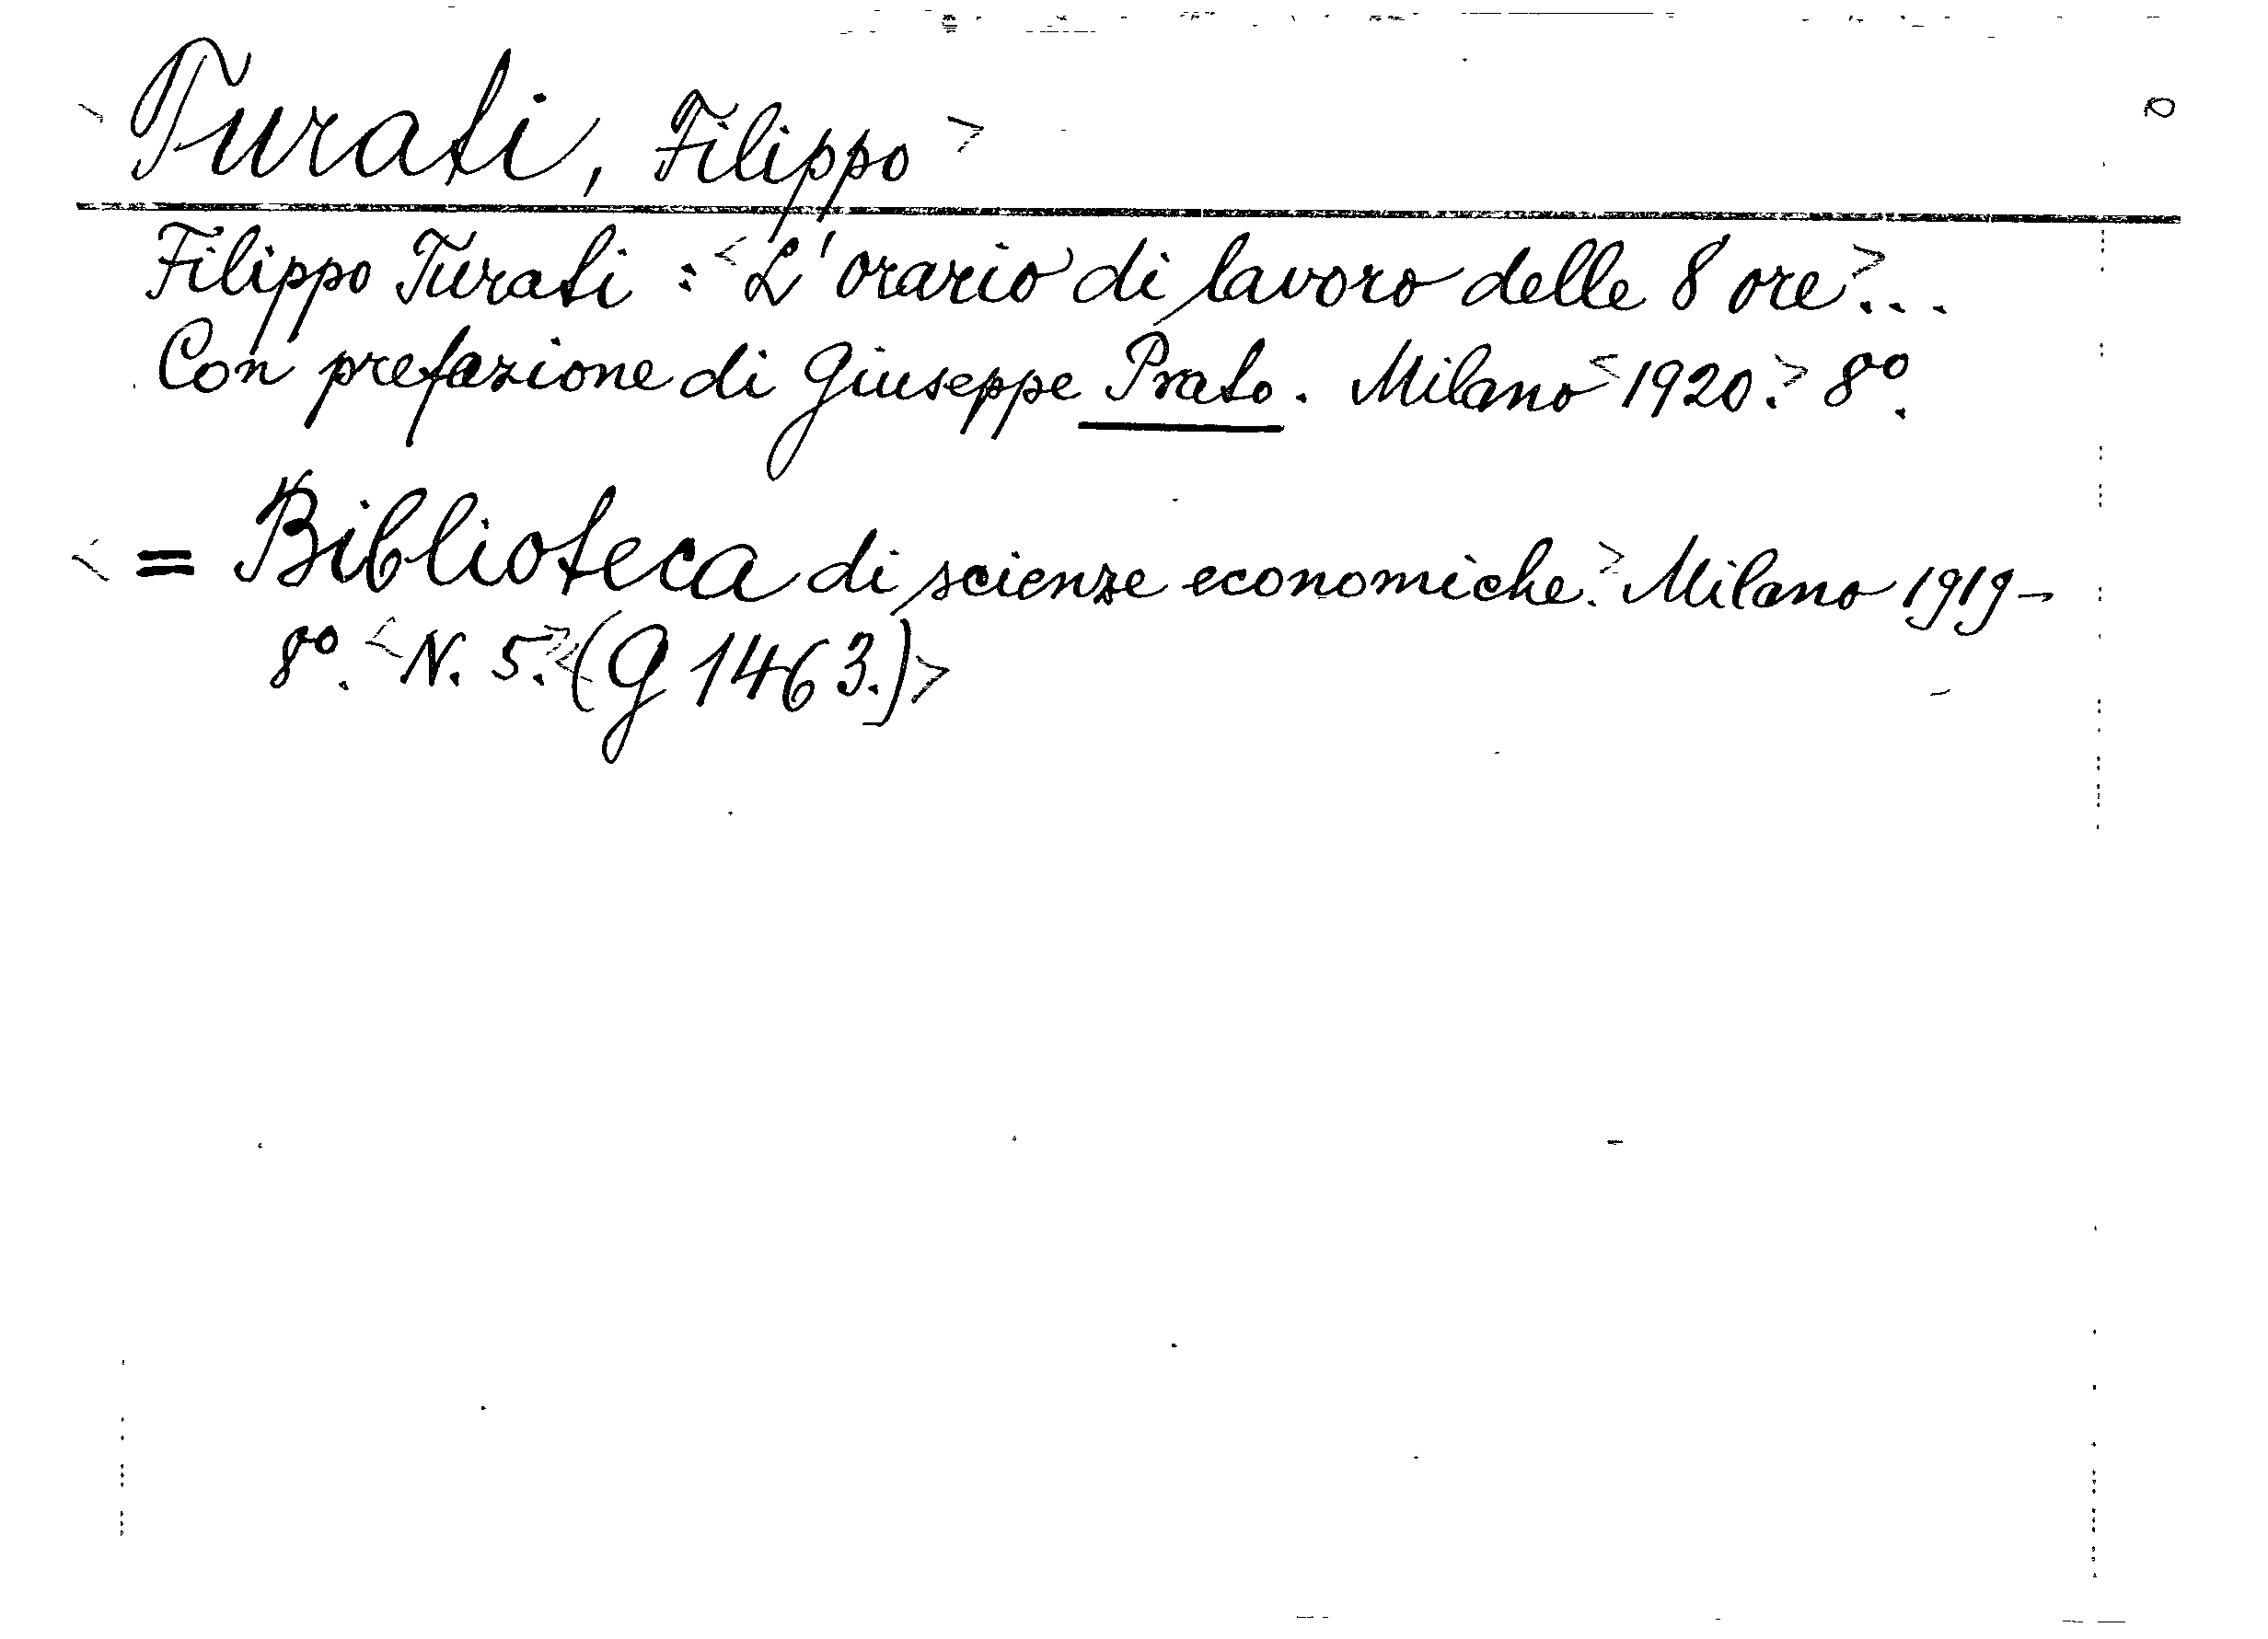 <Turati, Filippo>
Filippo Turati: <L'orario di lavoro delle 8 ore>...
Con prefazione di Giuseppe Prato. Milano <1920.> 8º.
<= Biblioteca di scienze economiche.> Milano 1919-
8º. <N. 5.> <(G 1463.)>